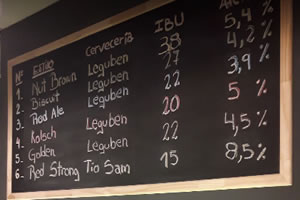 Nº ESTILO Cervecería IBU Alc
1. Nut Brown Leguben 38 5,4 %
2. Biscuit Leguben 27 4,2 %
3. Red Ale Leguben 22 3,9 %
4. Kolsch Leguben 20 5 %
5. Golden Leguben 22 4,5 %
6. Red Strong Tío Sam 15 8,5 %